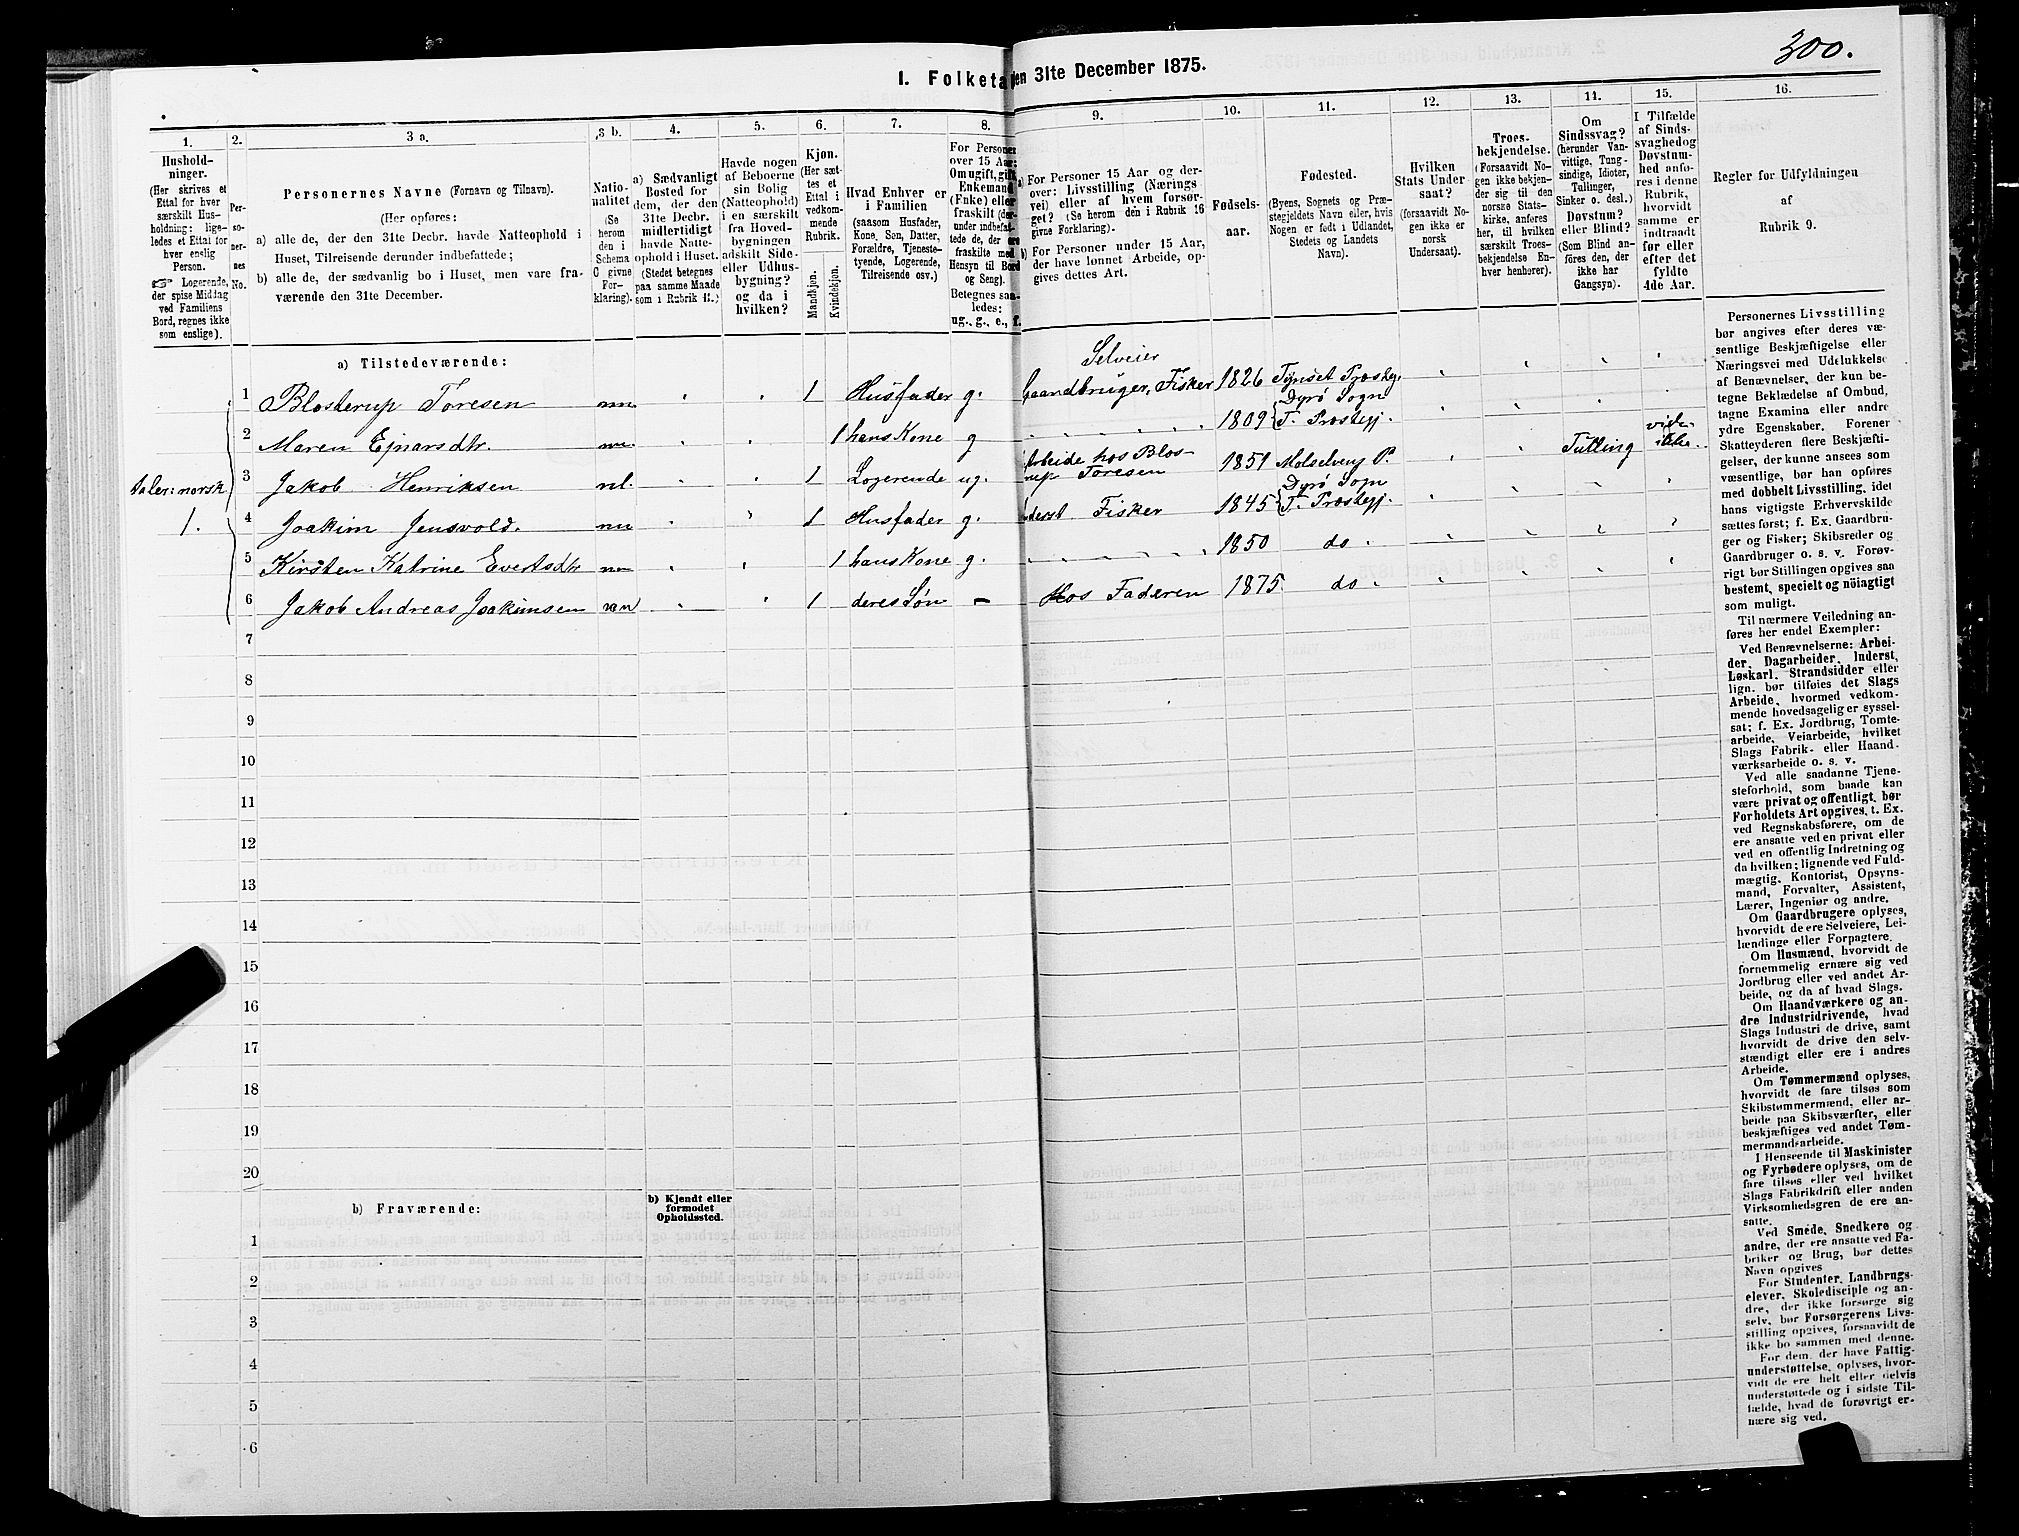 300.
1. Folketæ
en 31te December 1875.
1.
2.
3 a.
3 b.
4.
5.
6.
7.
8.
9.
10.
11.
12.
13.
14.
15.
16.
Hushold-
ninger.
(Her skrives et
Ettal for hver
særskilt Hus-
holdning: lige-
ledes et Ettal for
hver enslig
Person.
☞ Logerende,
der spise Middag
ved Familiens
Bord, regnes ikke
som enslige).
Per-
so-
ner-
nes
No.
Personernes Navne (Fornavn og Tilnavn).
(Her opføres:
a) alle de, der den 31te Decbr. havde Natteophold i
Huset, Tilreisende derunder indbefattede;
b) alle de, der sædvanlig bo i Huset, men vare fra-
værende den 31te December.
Natio-
nalitet
(Se
herom
den i
Schema
C givne
For-
klaring).
a) Sædvanligt
Bosted for
dem, der den
31te Decbr.
midlertidigt
havde Natte-
ophold i Huset.
(Stedet betegnes
paa samme Maade
som i Rubrik 11.)
Havde nogen
af Beboerne
sin Bolig
(Natteophold)
i en særskilt
fra Hoved-
bygningen
adskilt Side-
eller Udhus-
bygning?
og da i
hvilken?
Kjøn.
(Her sæt-
tes et
Ettal i
vedkom-
mende
Rubrik.
Mandkjøn.
Kvindekjøn.
Hvad Enhver er
i Familien
(saasom Husfader,
Kone, Søn, Datter,
Forældre, Tjeneste-
tyende, Logerende,
Tilreisende osv.)
For Personer
over 15 Aar:
Om ugift, gift,
Enkemand
(Enke) eller
fraskilt (der-
under indbefat-
tede de, der ere
fraskilte med
Hensyn til Bord
og Seng).
Betegnes saa-
ledes:
ug., g., e., f.
a) For Personer 15 Aar og der-
over: Livsstilling (Nærings
vei) eller af hvem forsør-
get? (Se herom den i Rubrik 16
givne Forklaring).
b) For Personer under 15 Aar,
der have lønnet Arbeide, op-
gives dettes Art.
Fødsels-
aar.
Fødested.
(Byens, Sognets og Præ-
stegjeldets Navn eller, hvis
Nogen er født i Udlandet,
Stedets og Landets
Navn).
Hvilken
Stats Under
saat?
(forsaavidt No-
gen ikke er
norsk
Undersaat).
Troes-
bekjendelse.
(Forsaavidt No-
gen ikke bekjen-
der sig til den
norske Stats-
kirke, anføres
her, til hvilken
særskilt Troes-
bekjendelse En-
hver henhorer).
Om
Sindssvag?
(herunder Van-
vittige, Tung-
sindige, Idioter,
Tullinger,
Sinker o. desl.)
Døvstum?
eller Blind?
(Som Blind an-
føres den, der
ikke har
Gangsyn).
I Tilfælde
af Sinds-
svaghed og
Døvstum-
hed anfø-
res i denne
Rubrik,
hvorvidt
samme er
indtraadt
før eller
efter det
fyldte
4de Aar.
Regler for Udfyldningen
af
Rubrik 9.
a) Tilstedeværende:
1 Blosterup Toresen nn 1 Husfader g. Selveier Gaardbruger, Fisker 1826 Tynset Præsteg.
2 Maren Ejnarsdtr. nn. 1 hans Kone g 1809 Dyrø Sogn T. Præstegj.
taler: norsk. 3 Jakob Henriksen nl. 1 Logerende ug. Arbeide hos Blos-rup Toresen 1851 Molselven P. Tulling vides ikke
1. 4 Joakim Jensvold. nn 1 Husfader g. Inderst Fisker 1845 Dyrø Sogn T. Præstegj.
5 Kirsten Katrine Evertsdtr nn 1 hans Kone g. 1850 do
6 Jakob Andreas Joakimsen nn 1 deres Søn - Hos Faderen 1875. do
7
8
9
10
11
12
13
14
15
16
17
18
19
20
b) Fraværende:
b) Kjendt eller
formodet
Opholdssted.
1
2
3
4
5
6
Personernes Livsstilling
bør angives efter deres væ-
sentlige Beskjæftigelse eller
Næringsvei med Udelukkelse
af Benævnelser, der kun be-
tegne Beklædelse af Ombud,
tagne Examina eller andre
ydre Egenskaber. Forener
Skatteyderen flere Beskjæfti-
gelser, der kunne ansees som
væsentlige, bør han opføres
med dobbelt Livsstilling, idet
hans vigtigste Erhvervskilde
sættes først; f. Ex. Gaardbru-
ger og Fisker; Skibsreder og
Gaardbruger o. s. v. Forøv-
rigt bør Stillingen opgives saa
bestemt, specielt og nöiagtigt
som muligt.
Til nærmere Veiledning an-
føres her endel Exempler:
Ved Benævnelserne: Arbei-
der, Dagarbeider, Inderst,
Løskarl, Strandsidder eller
lign. bør tilføies det Slags
Arbeide, hvormed vedkom-
mende hovedsagelig er syssel-
sat; f. Ex. Jordbrug, Tomte-
arbeide, Veiarbeide, hvilket
Slags Fabrik- eller Haand-
værksarbeide o. s. v.
Ved alle saadanne Tjene-
steforhold, som baade kan
være privat og offentligt, bør
Forholdets Art opgives, t. Ex.
ved Regnskabsførere, om de
ere ansatte ved en privat eller
ved en offentlig Indretning og
da hvilken; lignende ved Fuld-
mægtig, Kontorist, Opsyns-
mand, Forvalter, Assistent,
Lærer, Ingeniør og andre.
Om Gaardbrugere oplyses,
hvorvidt de ere Selveiere, Lei-
lændinge eller Forpagtere.
Om Husmænd, hvorvidt de
fornemmelig ernære sig ved
Jordbrug eller ved andet Ar-
beide, og da af hvad Slags.
Om Haandværkere og an-
dre Industridrivende, hvad
Slags Industri de drive, samt
hvorvidt de drive den selv-
stændigt eller ere i andres
Arbeide.
Om Tømmermænd oplyses,
hvorvidt de fare tilsøs som
Skibstømmermænd, eller ar-
beide paa Skibsværfter, eller
beskjæftiges ved andet Tøm-
mermandsarbeide.
I Henseende til Maskinister
og Fyrbødere oplyses, om de
fare tilsøs eller ved hvilket
Slags Fabrikdrift eller anden
Virksomhedsgren de ere an-
satte.
Ved Smede, Snedkere og
andre, der ere ansatte ved Fa-
briker og Brug, bør dettes
Navn opgives
For Studenter, Landbrugs-
elever, Skoledisciple og an-
dre, der ikke forsørge sig
selv, bør Forsørgerens Livs-
stilling opgives, forsaavidt de
ikke bo sammen med denne.
For dem, der have Fattig-
understøttelse, oplyses, hvor-
vidt de ere helt eller delvis
understøttede og i sidste Til-
fælde, hvad de forøvrigt er-
nære sig ved.